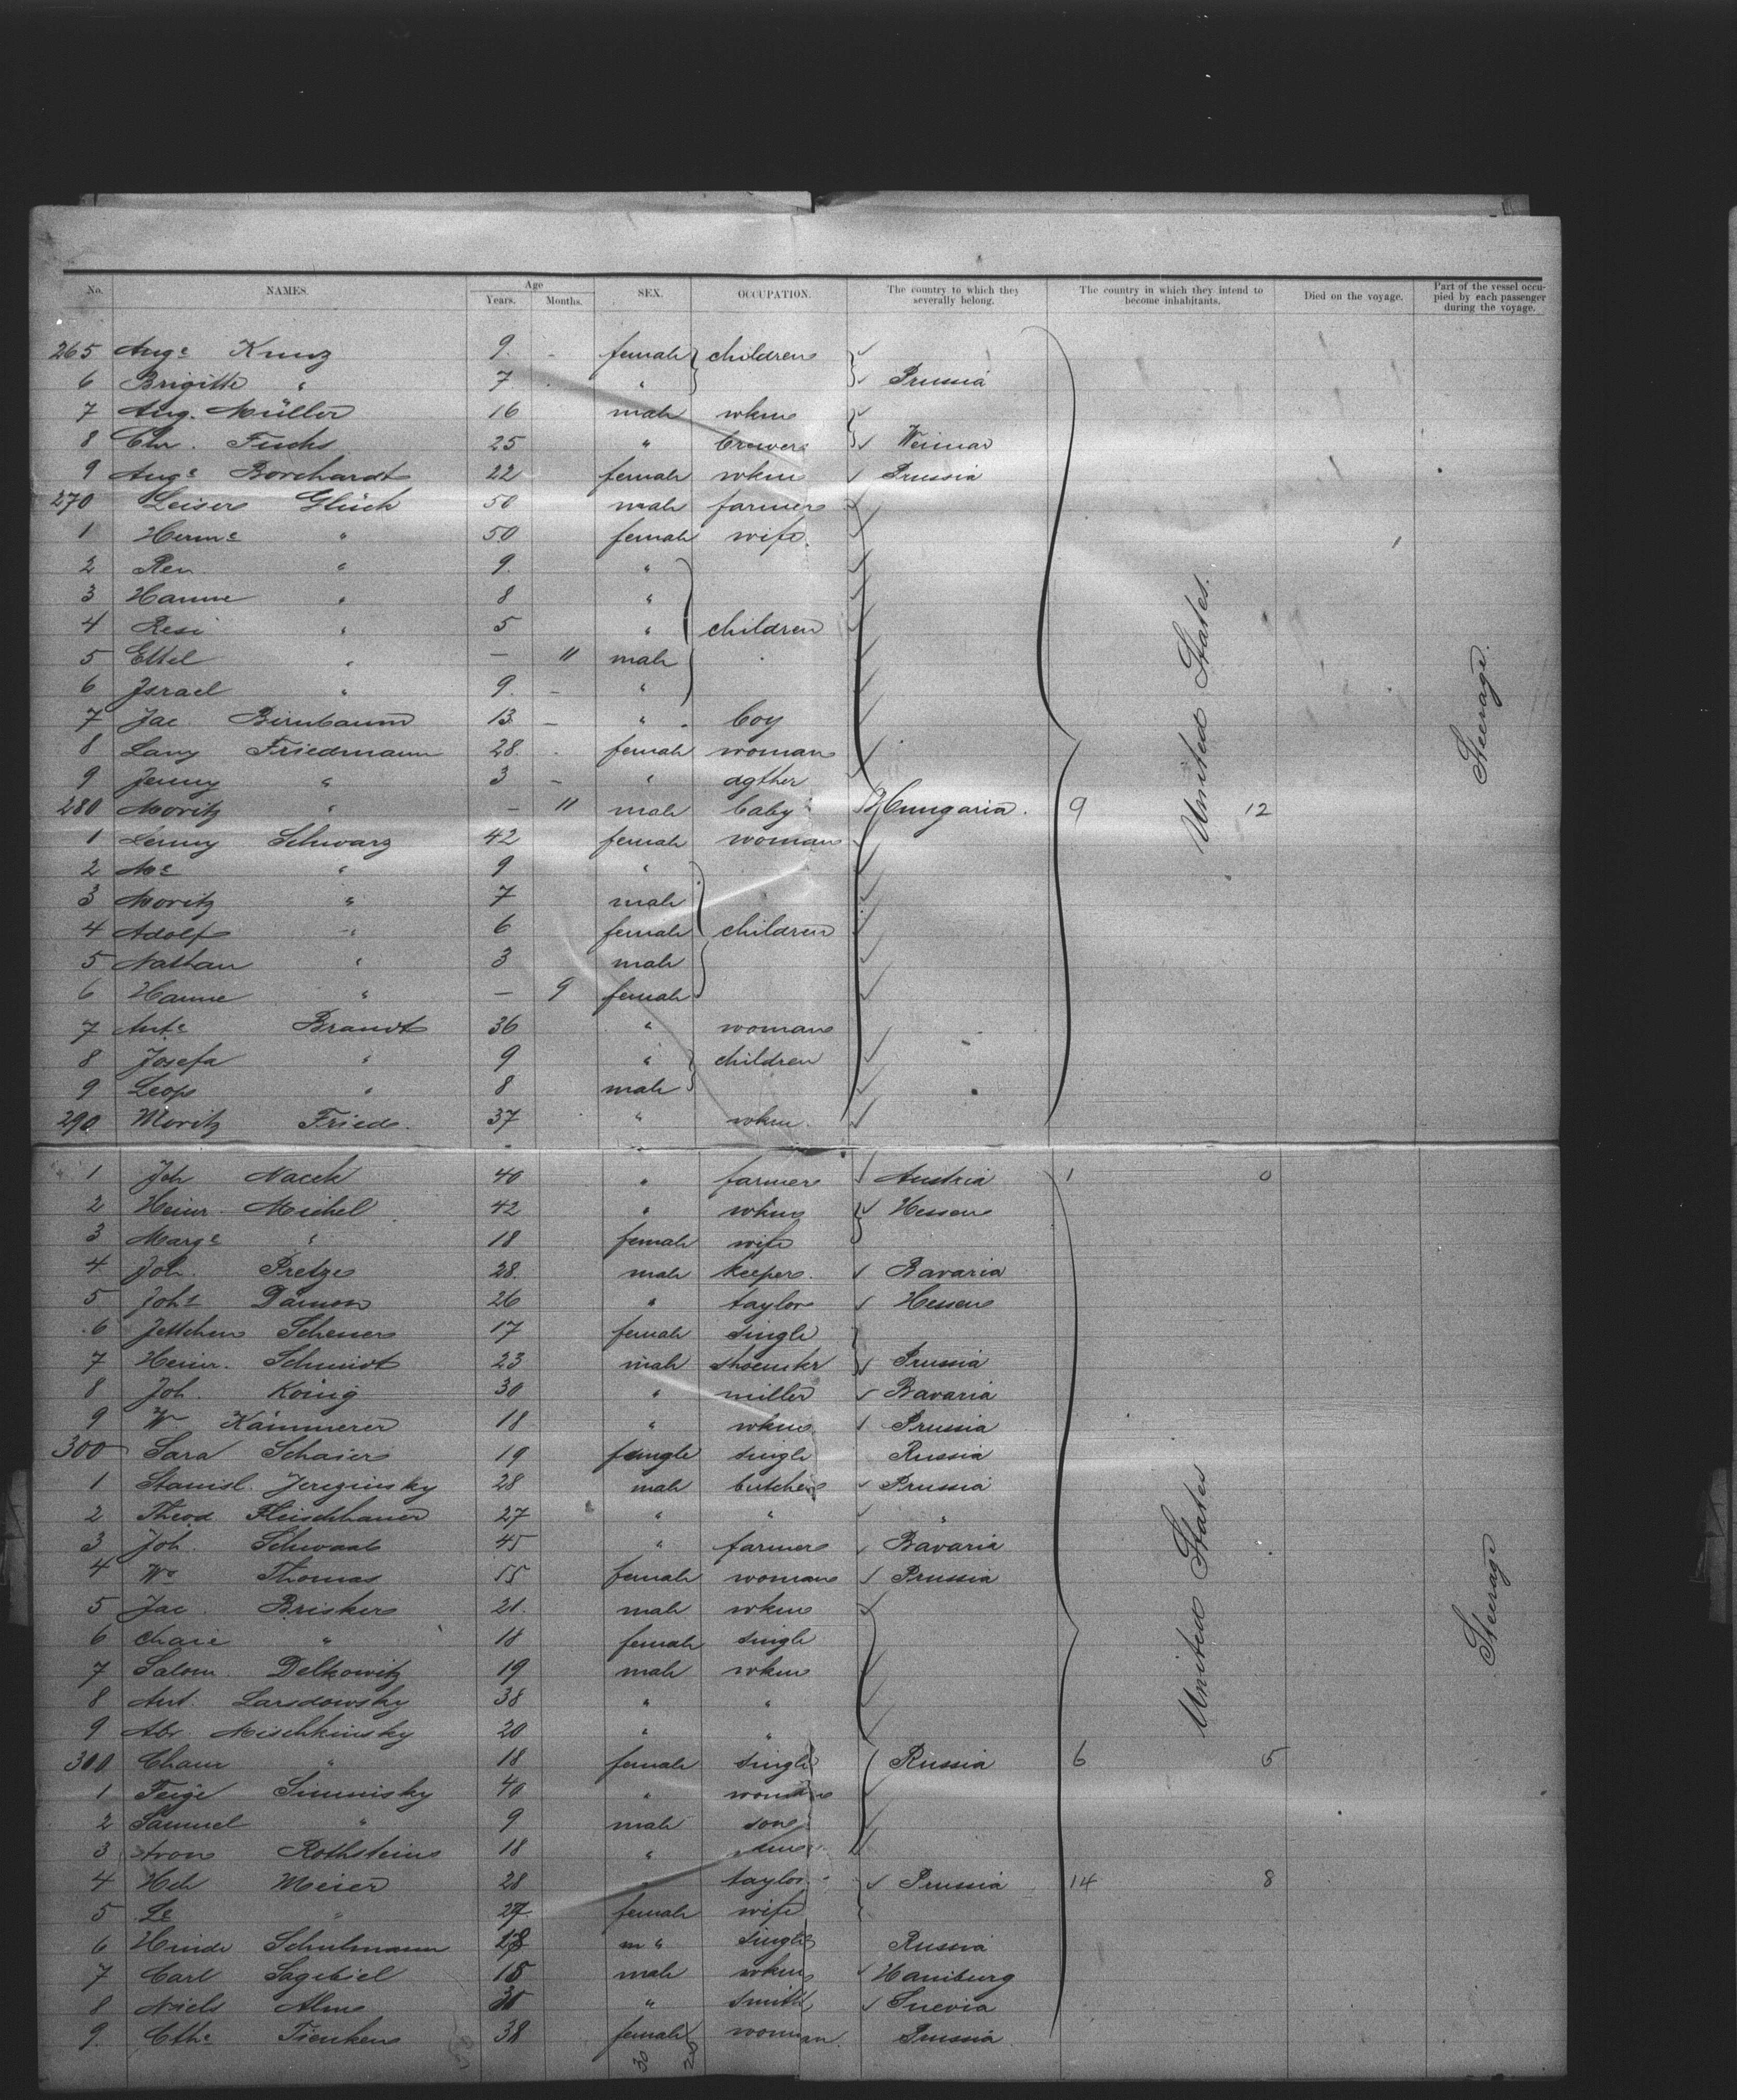 No. NAMES. Age Years. Months. SEX. OCCUPATION. The country to which they severally belong. The country in which they intend to become inhabitants. Died on the voyage. Part of the vessel occupied by each passenger during the voyage.
265 Auge Kunz 9 - female children
6 Brigitte " 7 " Prussia
7 Aug. Müller 16 male wkm
8 Chr. Fuchs 25 " brewer Weimar
9 Auge Borchardt 22 female wkm Prussia
270 Leiser Glück 50 male farmer
1 Herme " 50 female wife
2 Ren " 9 "
3 Hanne " 8 "
4 Resi " 5 " children
5 Ettel " — 11 male
6 Israel " 9 - "
7 Jac Birnbaum 13 - " boy
8 Lany Friedmann 28 female woman
9 Jenny " 3 - " dgther
280 Moritz " - 11 male baby Hungaria. 9 United States. 12 Steerage.
1 Lenny Schwarz 42 female woman
2 Me " 9 "
3 Moritz " 7 male
4 Adolf " 6 female children
5 Nathan " 3 male
6 Hanne " — 9 female
7 Ante Brandt 36 " woman
8 Josefa " 9 " children
9 Leop " 8 male
290 Moritz Fried 37 " wkm
1 Joh Nacek 40 " farmer Austria 1 0
2 Heinr. Michel 42 " wkm Hessen
3 Marge " 18 female wife
4 Joh. Pretze 28 male keeper Bavaria
5 Johs Damon 26 " taylor Hessen
6 Jettchen Scheuer 17 female single
7 Heinr. Schmidt 23 male shoemkr Prussia
8 Joh. König 30 " miller Bavaria
9 W Kämmerer 18 " wkm Prussia
300 Sara Schaier 19 single Russia
1 Stanisl. Jerezinsky 28 male butcher Prussia
2 Theod Fleischhauer 27 " " "
3 Joh. Schwaab 45 " farmer Bavaria
4 We Thomas 55 female woman Prussia
5 Jac. Brisker 21 male wkm
6 Chaie " 18 female single
7 Salom. Delkowitz 19 male wkm
8 Ant. Larsdowsky 38 " "
9 Abr. Mischkinsky 20 " "
300 Chaur " 18 female single Russia 6 United States 5 Steerage
1 Feige Siminsky 40 " woman
2 Samuel " 9 male son
3 Aron Rothstein 18 "
4 Hch Meier 28 taylor Prussia 14 8
5 Le " 27 female wife
6 Hinde Schulmann 18 " single Russia
7 Carl Sagebiel 15 male wkm Hamburg
8 Niels Alm " smith Suevia
9. Cthe Tienken 38 female woman Prussia
30 28